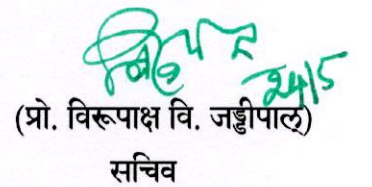 24/5
(प्रो. विरूपाक्ष वि. जड्डीपाल्)
सचिव